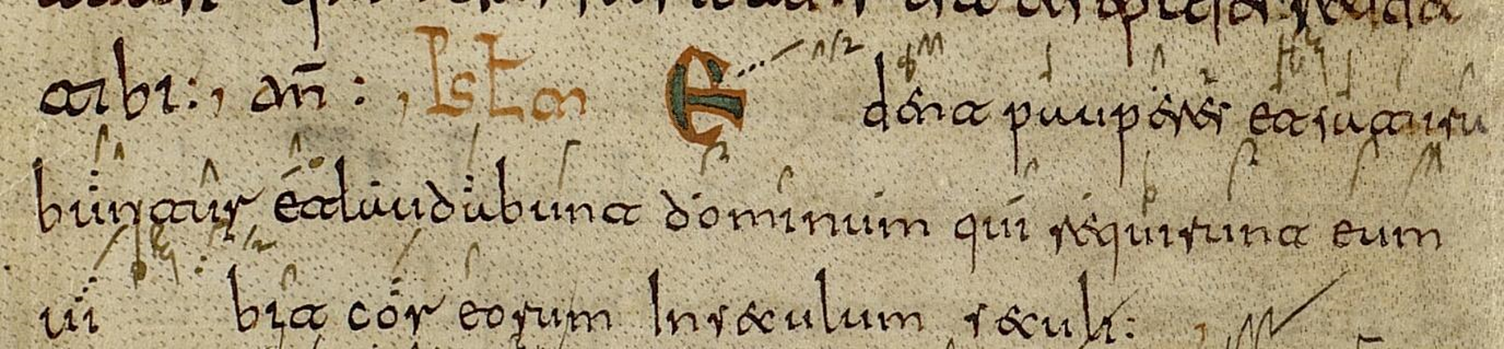 tibi :,
E dent pauperes et satura
buntur et laudabunt dominum qui requirunt eum
ui bit cor eorum In seculum seculi :